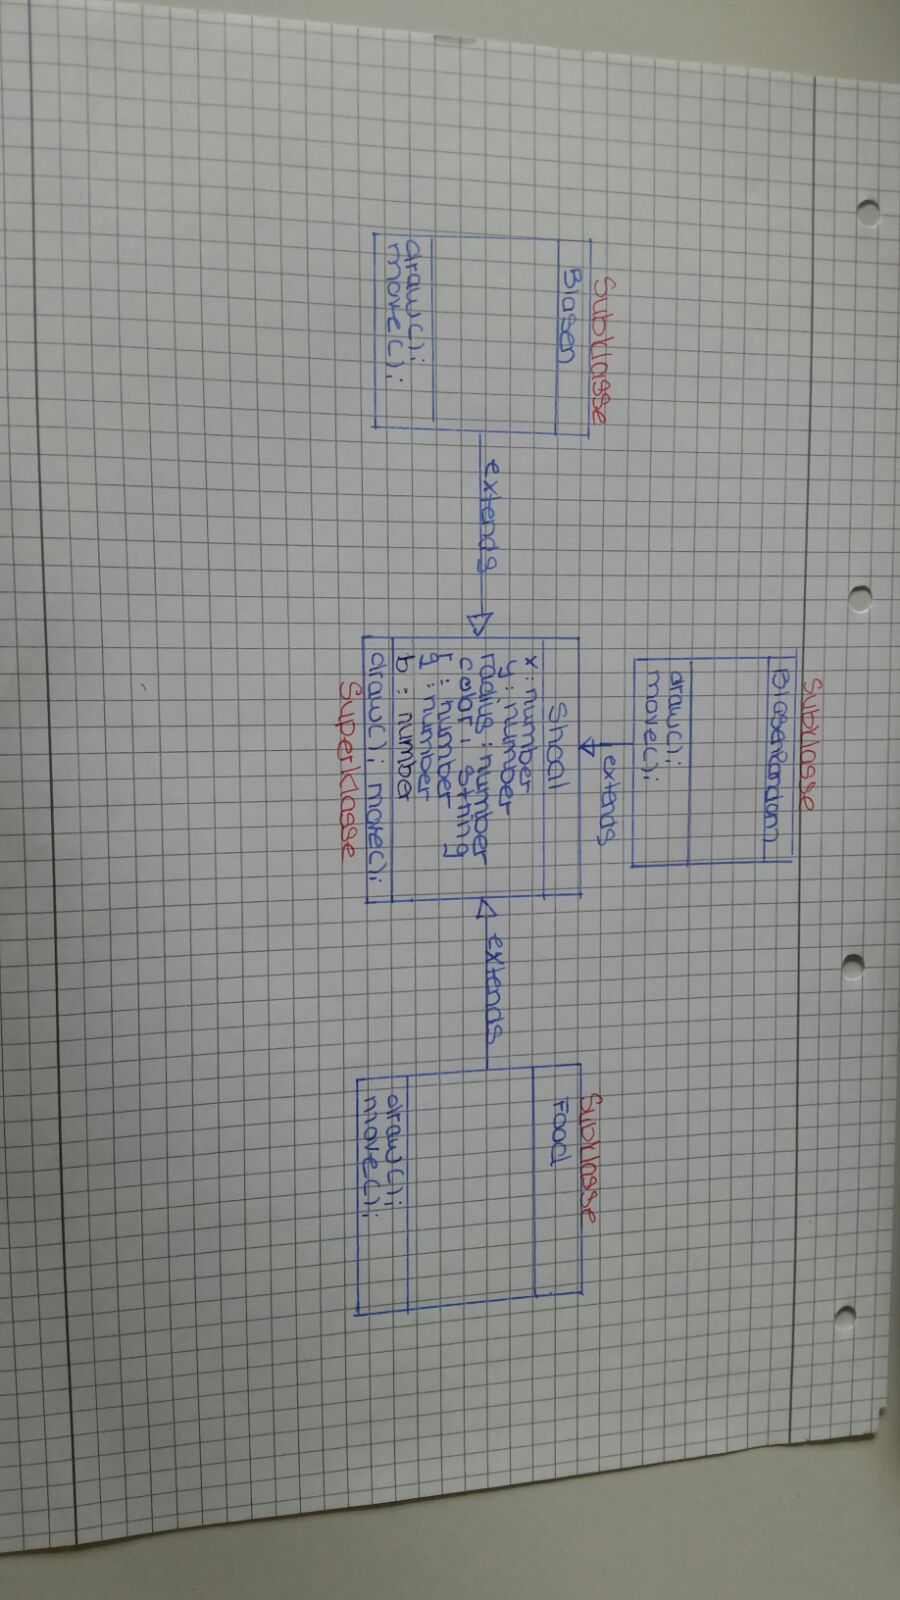 Subklasse
BlaseRandom
draw();
move();
extends
Subklasse
Blasen
draw();
move();
extends
Shoal
x: number
y: number
radius: number
color: string
r: number
g: number
b: number
draw(); move();
Superklasse
extends
Subklasse
Food
draw();
move();